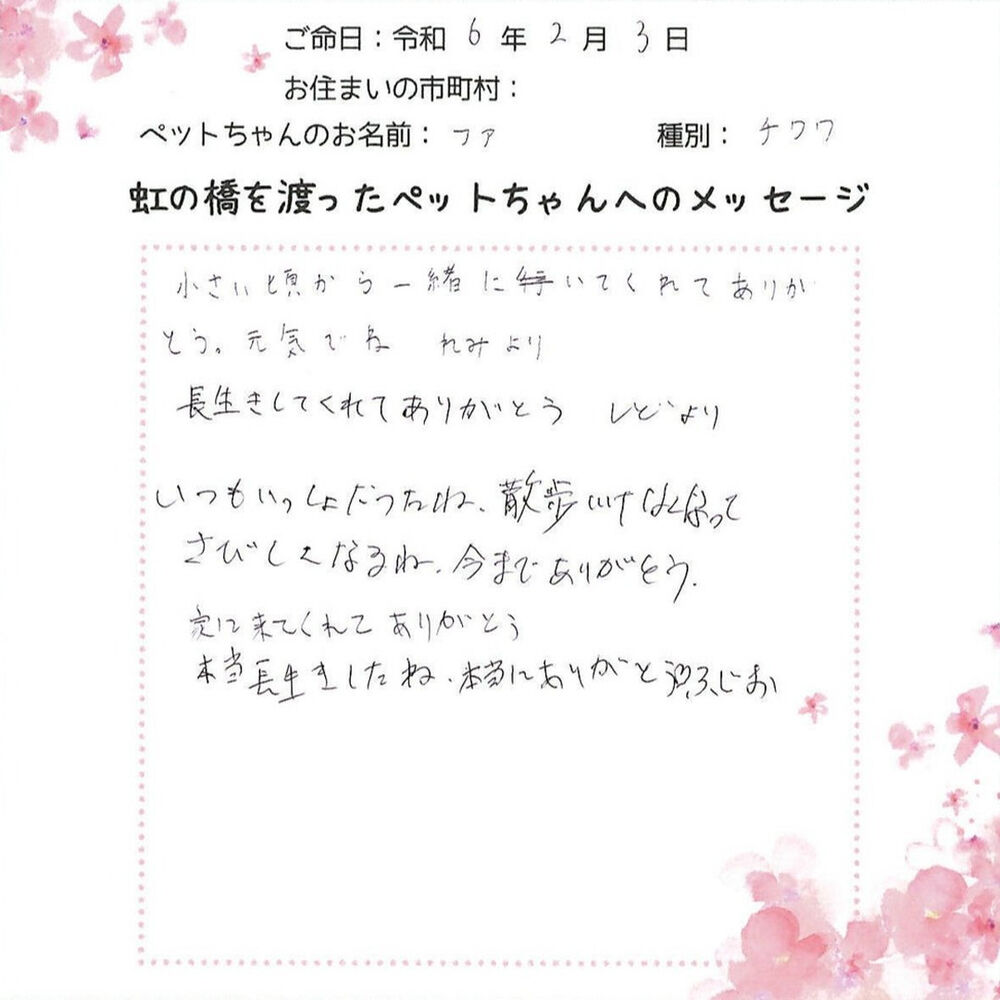 ご命日：令和 6 年 2 月 3 日
お住まいの市町村：
ペットちゃんのお名前： ファ 種別： チワワ
虹の橋を渡ったペットちゃんへのメッセージ
小さい頃から一緒にいてくれてありが
とう。元気でね れみより
長生きしてくれてありがとう しどより
いつもいっしょだったね、散歩いけなくなって
さびしくなるね、今までありがとう。
家に来てくれてありがとう
本当長生きしたね、本当にありがと